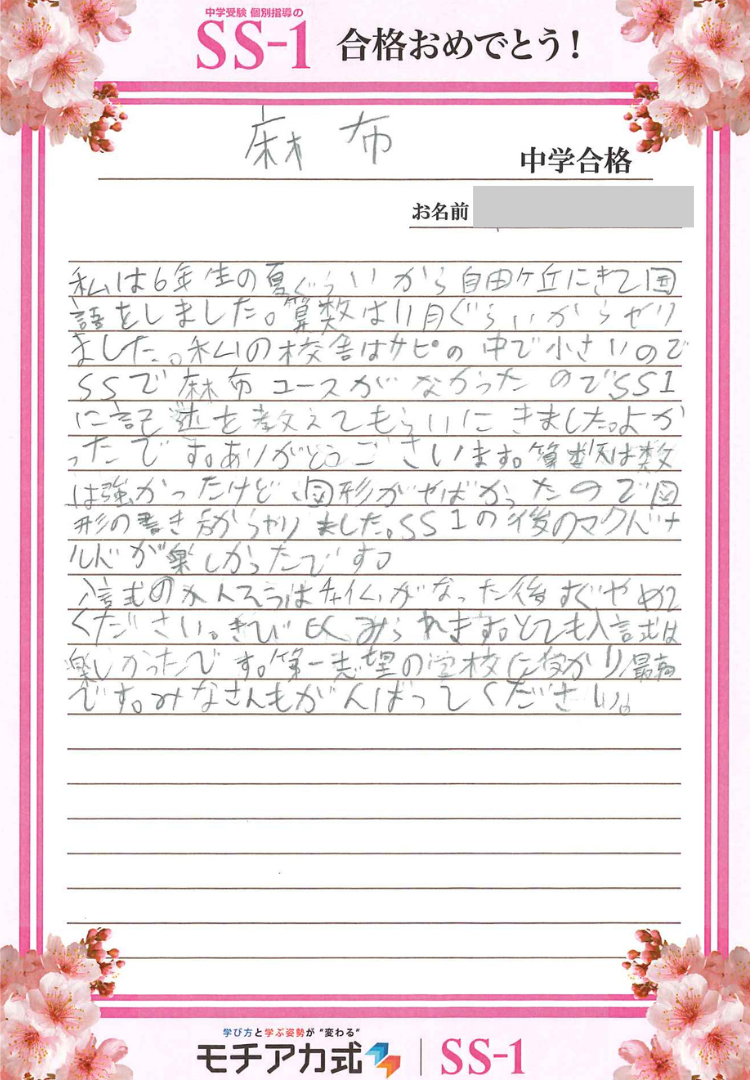 中学受験 個別指導の
SS-1 合格おめでとう！
麻布
中学合格
お名前
私は6年生の夏ぐらいから自由ケ丘にきて国
語をしました。算数は11月ぐらいからやり
ました。私の校舎はサピの中で小さいので
SSで麻布コースがなかったのでSS1
に記述を教えてもらいにきました。よか
ったです。ありがとうございます。算数は数
は強かったけど図形がやばかったので図
形の書き からやりました。SS1の後のマクドナ
ルドが楽しかったです
入試の はチャイムがなった後すぐやめて
ください。きびしくみられます。とても入試は
楽しかったです。第一志望の学校に受かり最高
です。みなさんもがんばってください。
学び方と学ぶ姿勢が“変わる”
モチアカ式 SS-1